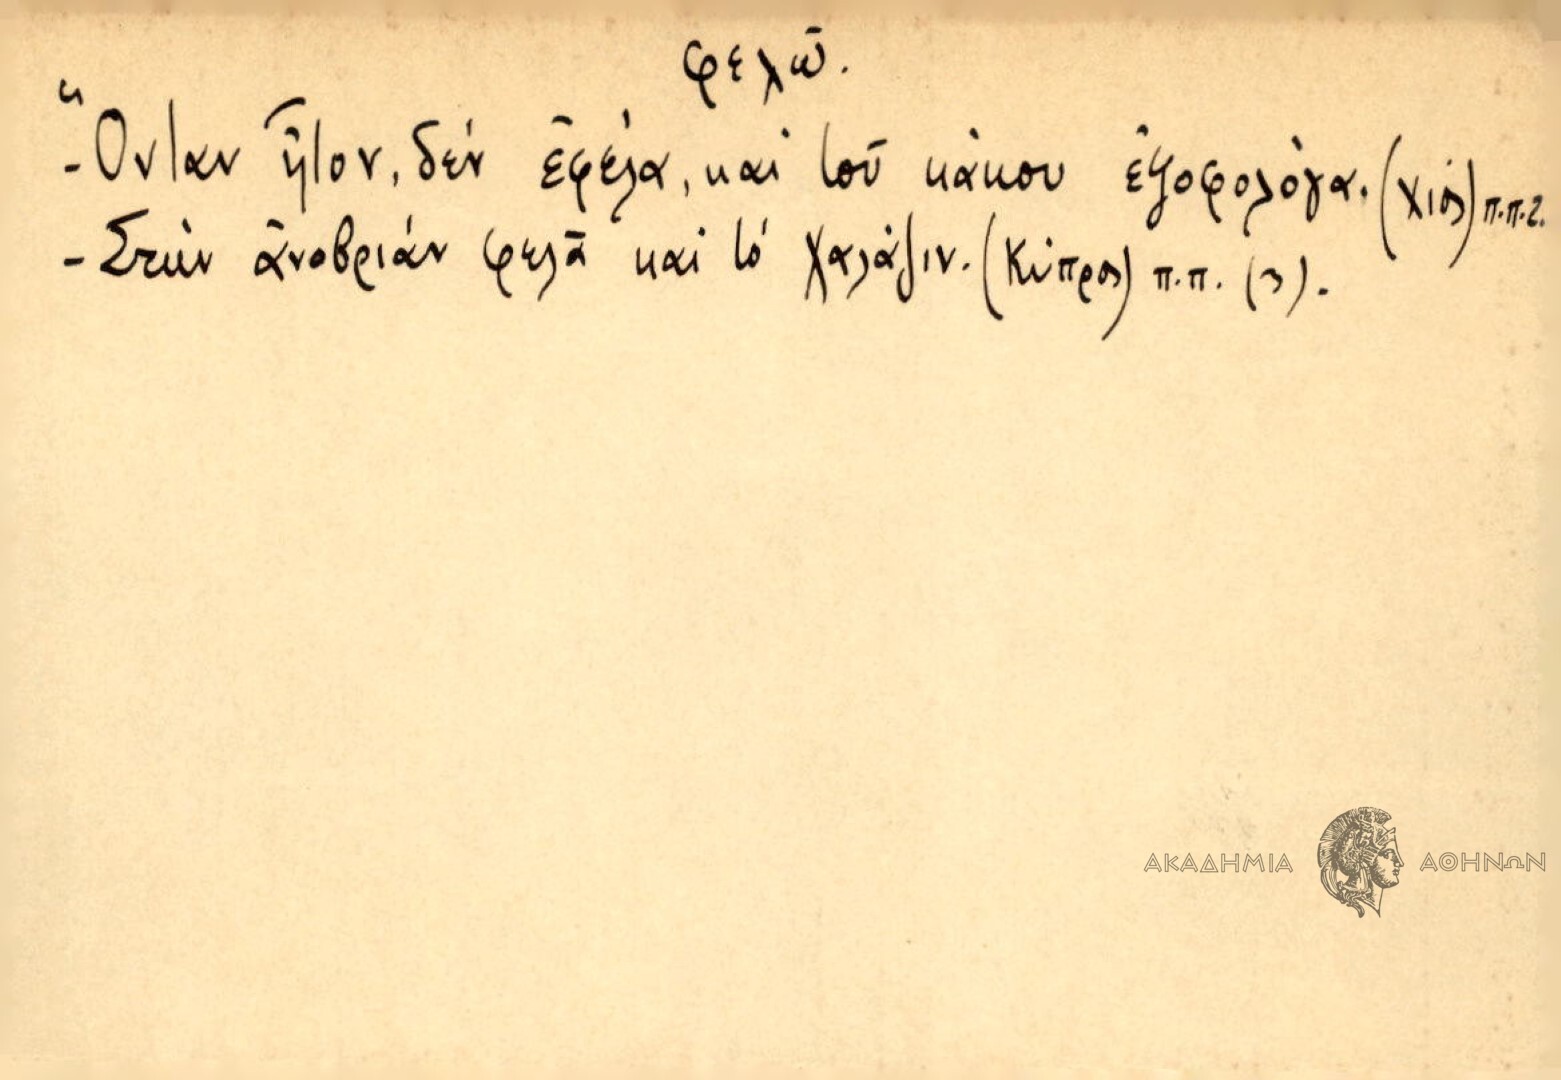 φελῶ.
- Ὅνταν ἦτον, δέν ἐφέλα, καί τοῦ κάκου ἐψοφολόγα. (Χίος) π.π. 2.
- Στήν ἀνοβριάν φελᾶ καί τό χαλάζιν. (Κύπρος) π.π. (2).
ΑΚΑΔΗΜΙΑ ΑΘΗΝΩΝ